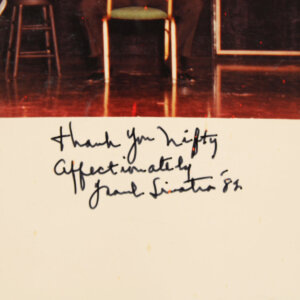 Thank you Nifty
Affectionately
Frank Sinatra '82